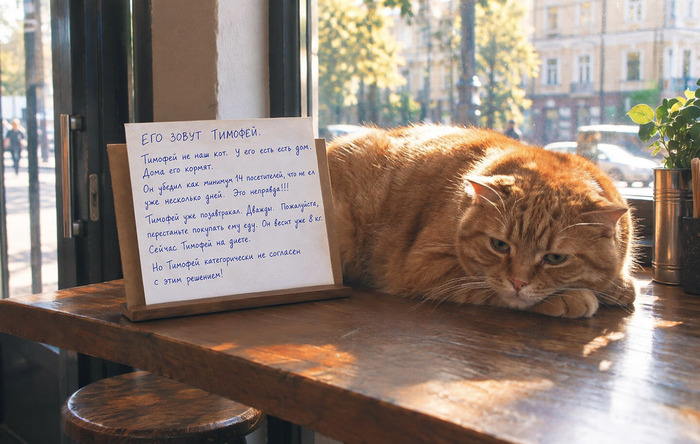 ЕГО ЗОВУТ ТИМОФЕЙ.
Тимофей не наш кот. У его есть есть дом.
Дома его кормят.
Он убедил как минимум 14 посетителей, что не ел
уже несколько дней. Это неправда!!!
Тимофей уже позавтракал. Дважды. Пожалуйста,
перестаньте покупать ему еду. Он весит уже 8 кг.
Сейчас Тимофей на диете.
Но Тимофей категорически не согласен
с этим решением!